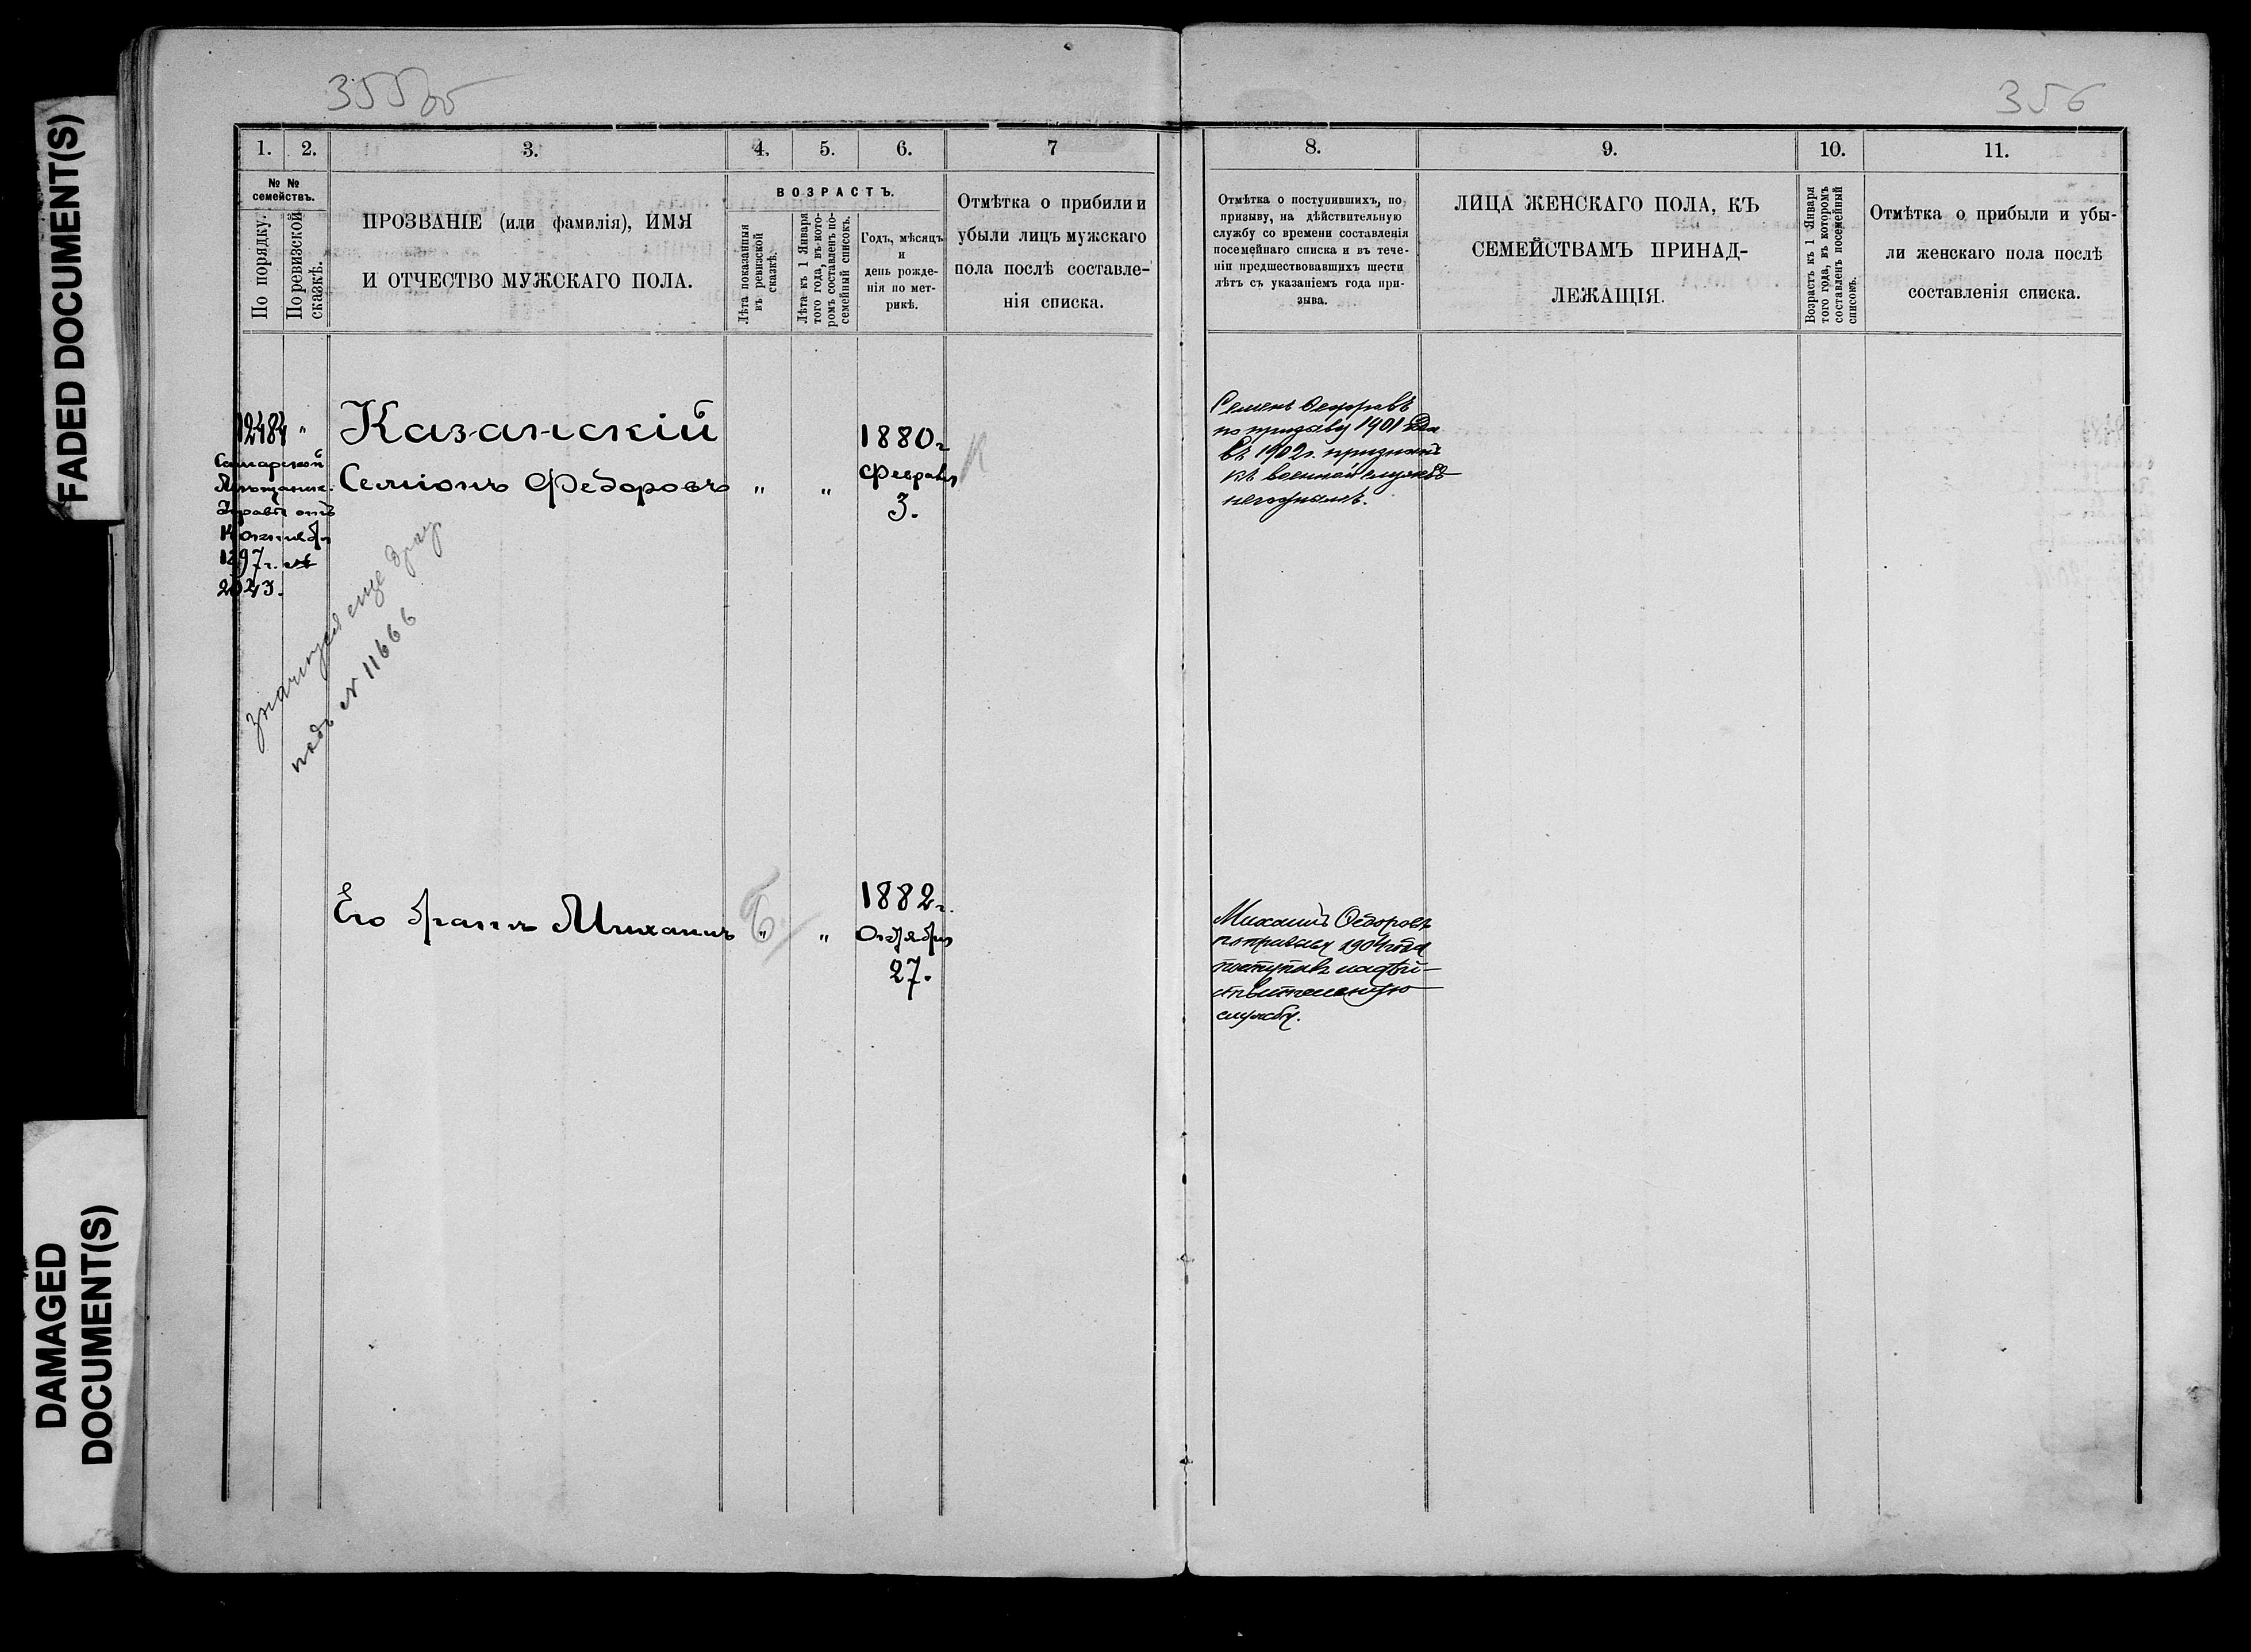 FAADED DOCUMENT(S)
DAMAGED
DOCUMENT(S)
355об
356
1. 2. 3. 4. 5. 6. 7
№ №
семействъ.
По порядку.
По ревизской
сказкѣ.
ПРОЗВАНІЕ (или фамилія), ИМЯ
И ОТЧЕСТВО МУЖСКАГО ПОЛА.
ВОЗРАСТЪ.
Лѣта показанныя
въ ревизской
сказкѣ.
Лѣта къ 1 Января
того года, въ кото-
ромъ составленъ по-
семейный списокъ.
Годъ, мѣсяцъ
и
день рожде-
нія по мет-
рикѣ.
Отмѣтка о прибыли и
убыли лицъ мужскаго
пола послѣ составле-
нія списка.
12484 "
Самарской
Мѣщанск.
Управы отъ
14 октября
1897 г. №
2043.
Казанскій
Семіонъ Федоровъ " "
1880 г.
Февраля
3.
значится еще
подъ № 11666
Его братъ Михаилъ " "
1882 г.
Октября
27.
8. 9. 10. 11.
Отмѣтка о поступившихъ, по
призыву, на дѣйствительную
службу со времени составленія
посемейнаго списка и въ тече-
ніи предшествовавшихъ шести
лѣтъ съ указаніемъ года при-
зыва.
ЛИЦА ЖЕНСКАГО ПОЛА, КЪ
СЕМЕЙСТВАМЪ ПРИНАД-
ЛЕЖАЩІЯ.
Возрастъ къ 1 Января
того года, въ которомъ
составленъ посемейный
списокъ.
Отмѣтка о прибыли и убы-
ли женскаго пола послѣ
составленія списка.
Семенъ Ѳедоровъ
по призыву 1901 года
въ 1902 г. признанъ
къ военной службѣ
негоднымъ.
Михаилъ Ѳедоровъ
по призыву 1904 года
поступилъ на дѣй-
ствительную
службу.